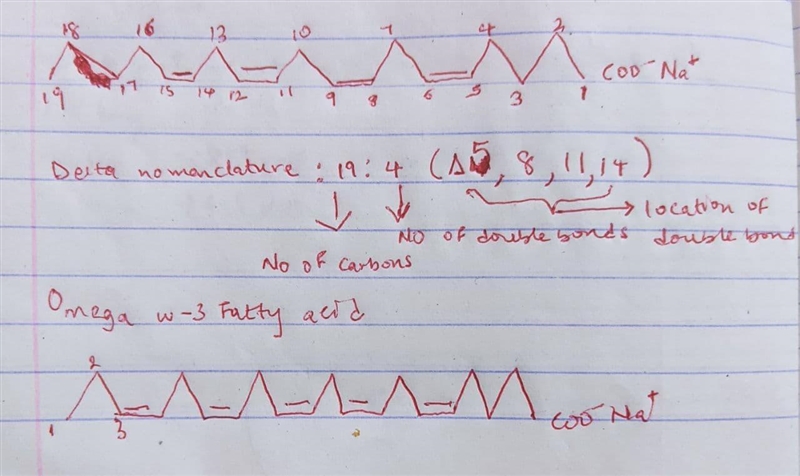 18 16 13 10 7 4 2
19 17 15 14 12 11 9 8 6 5 3 1 COO⁻Na⁺
Delta nomanclature : 19 : 4 (Δ5, 8, 11, 14)
location of
No of double bonds double bond
No of carbons
Omega w-3 Fatty acid
2
1 3 COO⁻Na⁺